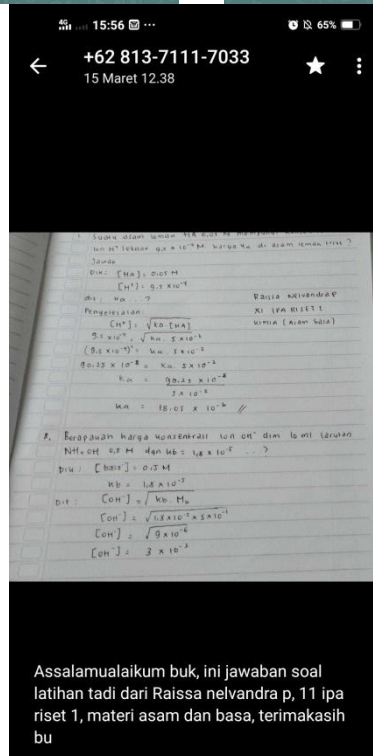 4G 15:56 ... 65%
+62 813-7111-7033
15 Maret 12.38
Suatu asam lemah HA 0,05 M mempunyai
ion H⁺ sebesar 9,5 x 10⁻⁴ M. harga Ka dr asam lemah trsbt ?
Jawab
Dik : [HA] = 0,05 M
[H⁺] = 9,5 x 10⁻⁴
dit : Ka ...?
Raissa Nelvandra.P
Penyelesaian
XI IPA RISET 1
[H⁺] = √Ka.[HA]
kimia (Asam basa)
9,5 x 10⁻⁴ = √Ka. 5 x 10⁻²
(9,5 x 10⁻⁴)² = Ka. 5 x 10⁻²
90,25 x 10⁻⁸ = Ka. 5 x 10⁻²
Ka = 90,25 x 10⁻⁸
5 x 10⁻²
Ka = 18,05 x 10⁻⁶ //
Berapakah harga konsentrasi ion OH⁻ dlm 10 ml larutan
NH₄OH 0,5 M dgn kb = 1,8 x 10⁻⁵ ...?
Dik : [basa] = 0,5 M
kb = 1,8 x 10⁻⁵
Dit : [OH⁻] = √Kb. Mb
[OH⁻] = √1,8 x 10⁻⁵ x 5 x 10⁻¹
[OH⁻] = √9 x 10⁻⁶
[OH⁻] = 3 x 10⁻³
Assalamualaikum buk, ini jawaban soal
latihan tadi dari Raissa nelvandra p, 11 ipa
riset 1, materi asam dan basa, terimakasih
bu